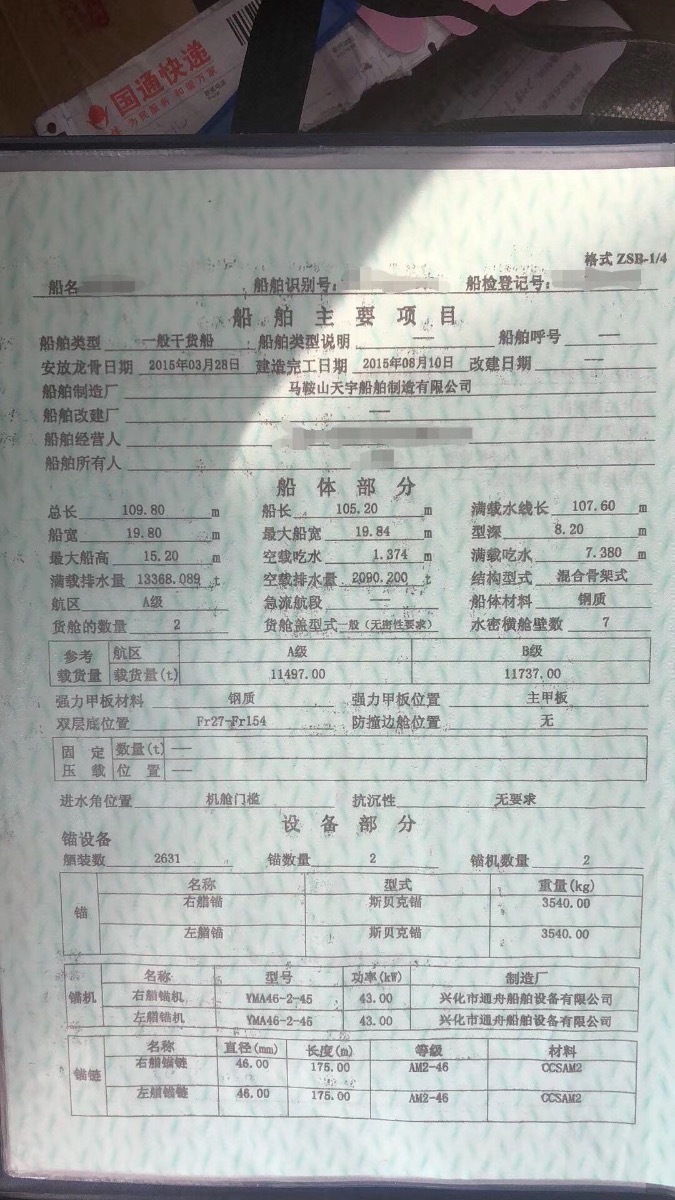 国通快递
为民服务 和谐万家
格式 ZSB-1/4
船名 船舶识别号: 船检登记号:
船舶主要项目
船舶类型 一般干货船 船舶类型说明 — 船舶呼号 —
安放龙骨日期 2015年03月28日 建造完工日期 2015年06月10日 改建日期 —
船舶制造厂 马鞍山天宇船舶制造有限公司
船舶改建厂 —
船舶经营人
船舶所有人
船体部分
总长 109.80 m 船长 105.20 m 满载水线长 107.60 m
船宽 19.80 m 最大船宽 19.84 m 型深 8.20 m
最大船高 15.20 m 空载吃水 1.374 m 满载吃水 7.380 m
满载排水量 13368.089 t 空载排水量 2090.200 t 结构型式 混合骨架式
航区 A级 急流航段 — 船体材料 钢质
货舱的数量 2 货舱盖型式 一般(无密性要求) 水密横舱壁数 7
参考 航区 A级 B级
载货量 载货量(t) 11497.00 11737.00
强力甲板材料 钢质 强力甲板位置 主甲板
双层底位置 Fr27-Fr154 防撞边舱位置 无
固定 数量(t) —
压载 位置 —
进水角位置 机舱门槛 抗沉性 无要求
设备部分
锚设备
舾装数 2631 锚数量 2 锚机数量 2
锚 名称 型式 重量(kg)
右艏锚 斯贝克锚 3540.00
左艏锚 斯贝克锚 3540.00
锚机 名称 型号 功率(kW) 制造厂
右艏锚机 YMA46-2-45 43.00 兴化市通舟船舶设备有限公司
左艏锚机 YMA46-2-45 43.00 兴化市通舟船舶设备有限公司
锚链 名称 直径(mm) 长度(m) 等级 材料
右艏锚链 46.00 175.00 AM2-46 CCSAM2
左艏锚链 46.00 175.00 AM2-46 CCSAM2